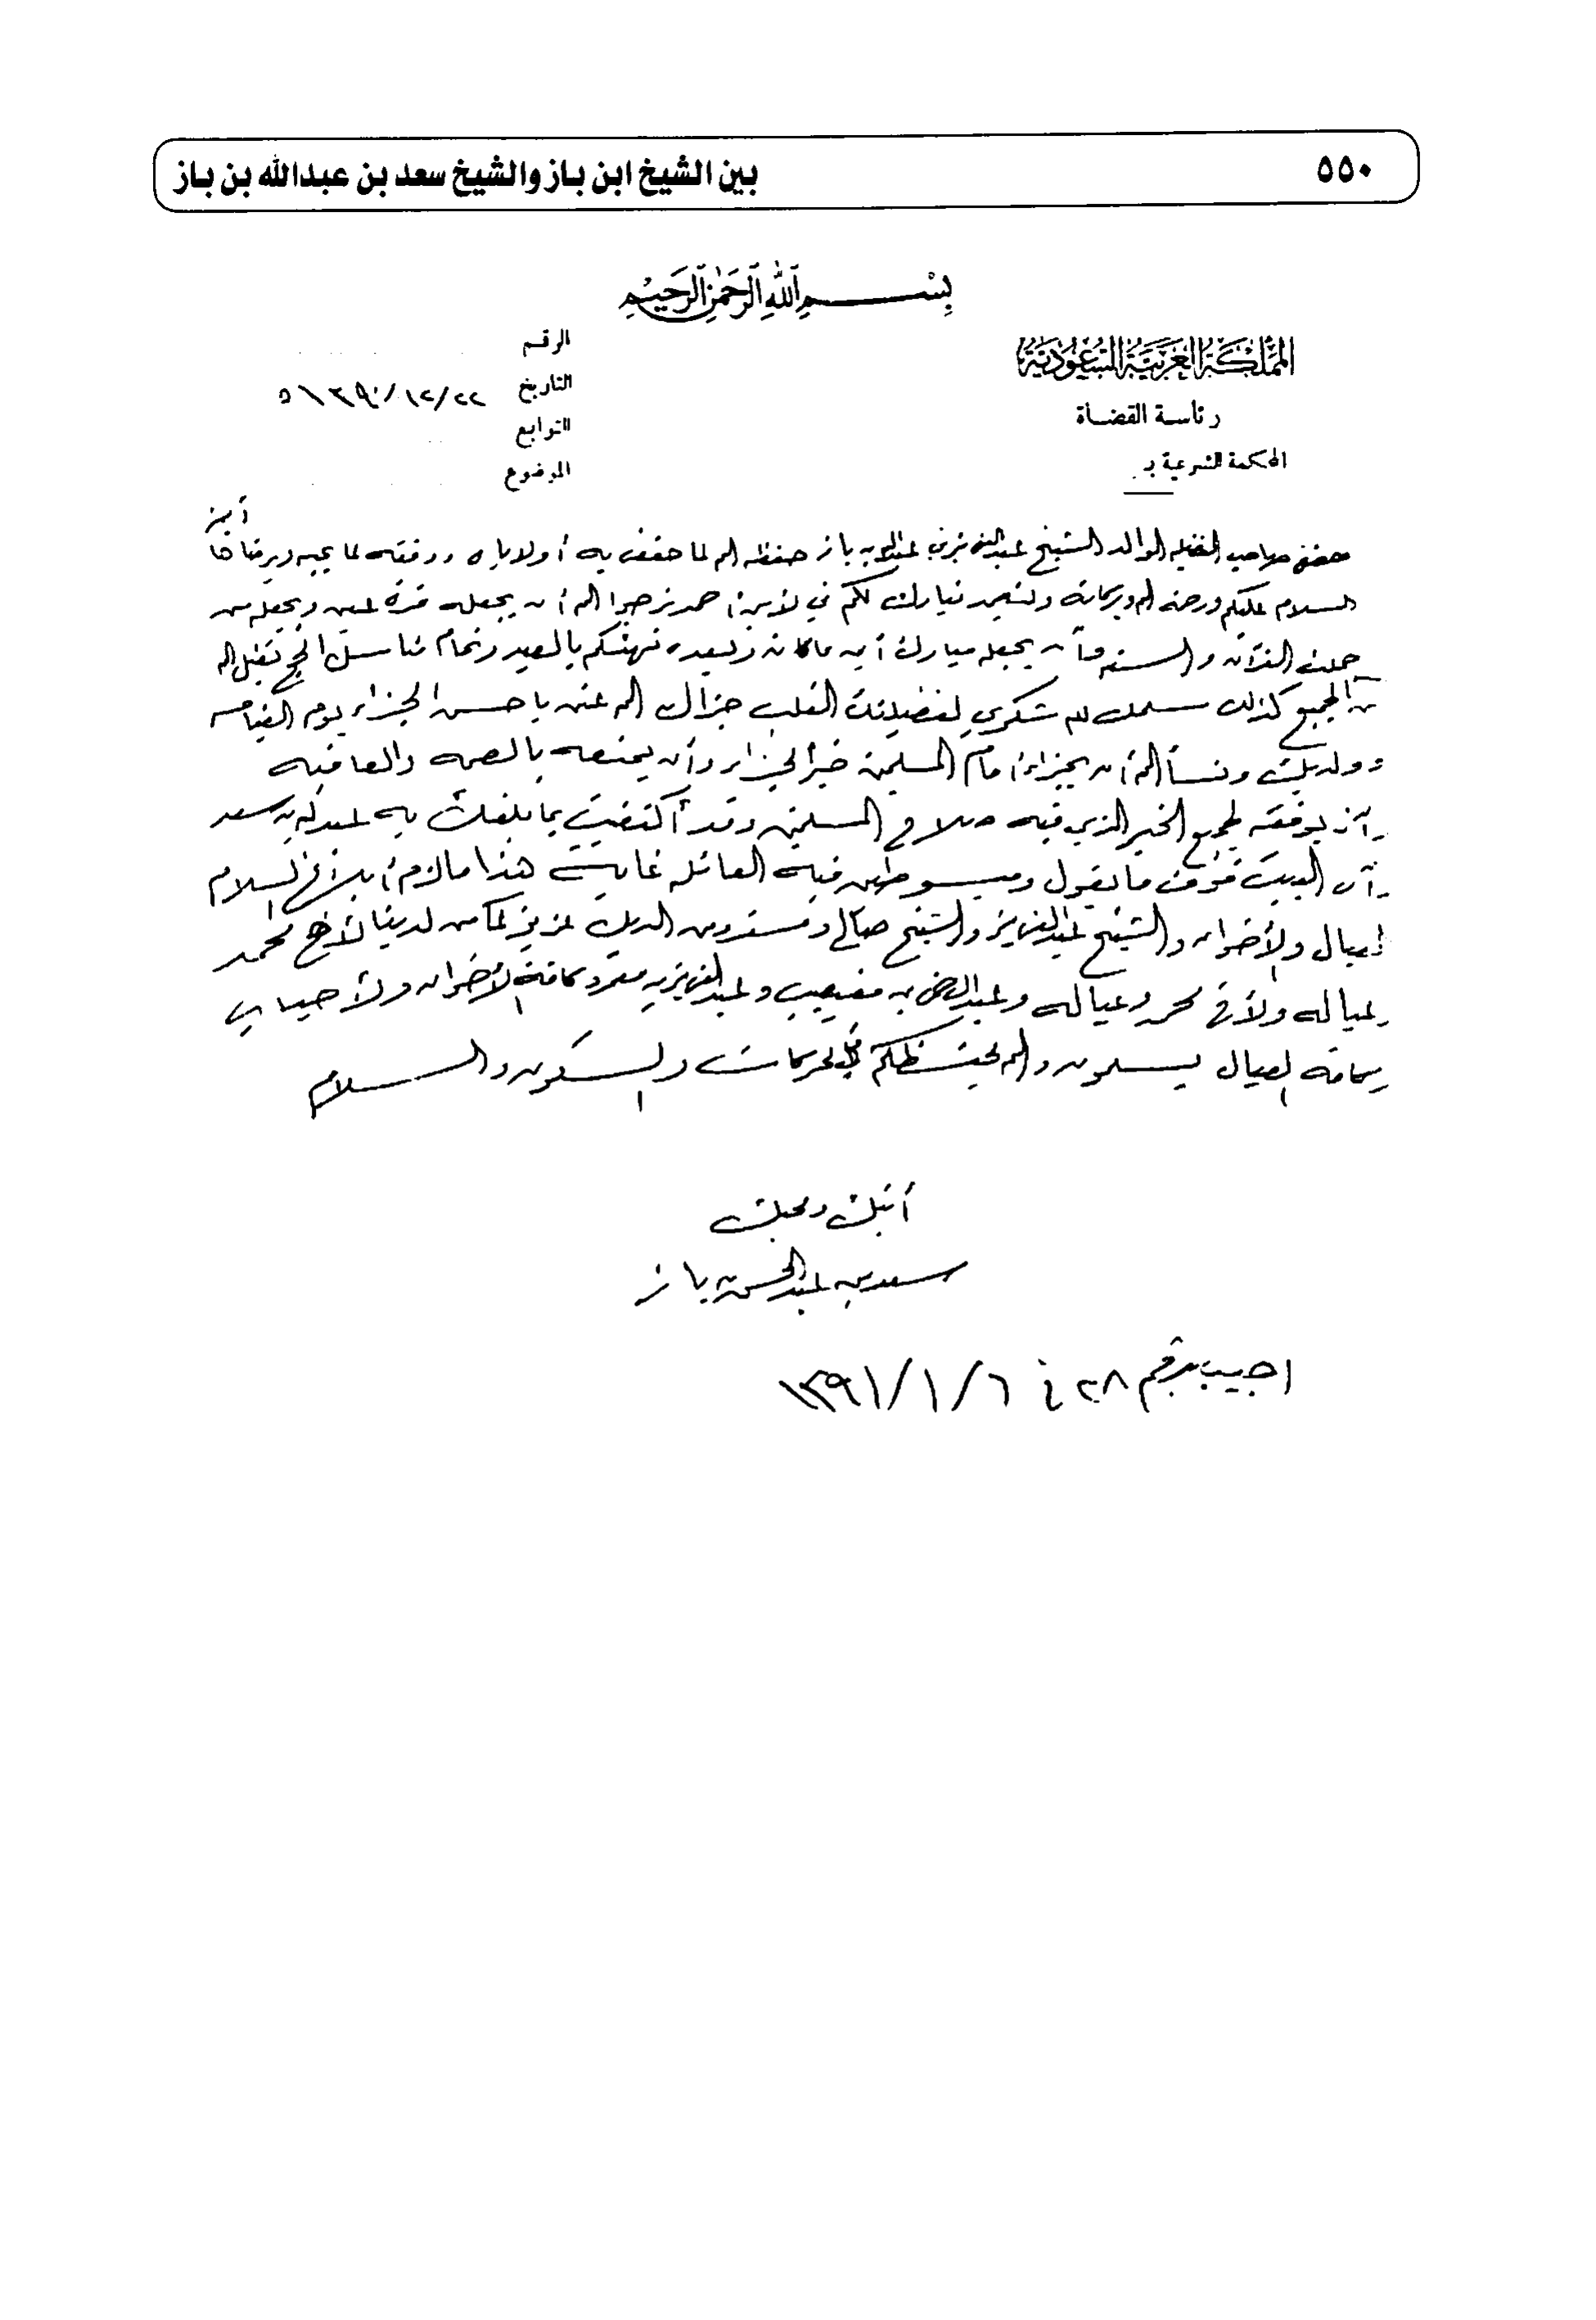 ٥٥٠
بين الشيخ ابن باز والشيخ سعد بن عبدالله بن باز
بسم الله الرحمن الرحيم
المملكة العربية السعودية
رئاسة القضاة
المحكمة الشرعية بـ
الرقم
التاريخ ٢٢/١٢/١٣٩٠ه
التوابع
الموضوع
حضرة صاحب الفضيله الوالد الشيخ عبدالعزيز بن عبدالله بن باز حفظه الله لما حفظ به أولاياه ووفقه لما يحبه ويرضاه آمين
السلام عليكم ورحمة الله وبركاته وبعد نبارك لكم في الأبن أحمد نرجوا الله أن يجعله قرة عين ويجعله من
حملت القرآن والسنه وأن يجعله مبارك أين ما كان وبعده نهنئكم بالعيد وتمام مناسك الحج تقبل الله
من الجميع كذلك شكري لفضيلتك القلب جزاك الله عني باحسن الجزاء يوم القيامه
ووالديك ونسأ الله أن يجزاء أمام المسلمين خير الجزاء وأن يمتعه بالصحه والعافيه
وأن يوفقه لجميع الخير الذي فيه صلاح المسلمين وقد أكتفيت بما بلغك به عبدالله بن سعد
وأن البيت فوق ما يقول ومبسوطين فيه العائله غايت هذا مالزم أبلاغ السلام
العيال والأخوان والشيخ عبدالعزيز والشيخ صالح ومن لديك عزيز كما من لدينا الأخ محمد
وعياله والأخ محمد وعياله وعبدالرحمن بن وعبدالعزيز بن معمر وكافة الأخوان والأحباب
وكافه العيال يسلمون والله يحفظكم في الحركات والسكون والسلام
أبنك ومحبك
سعد بن عبدالله بن باز
اجيب برقم ٢٨ في ٦/١/١٣٩١